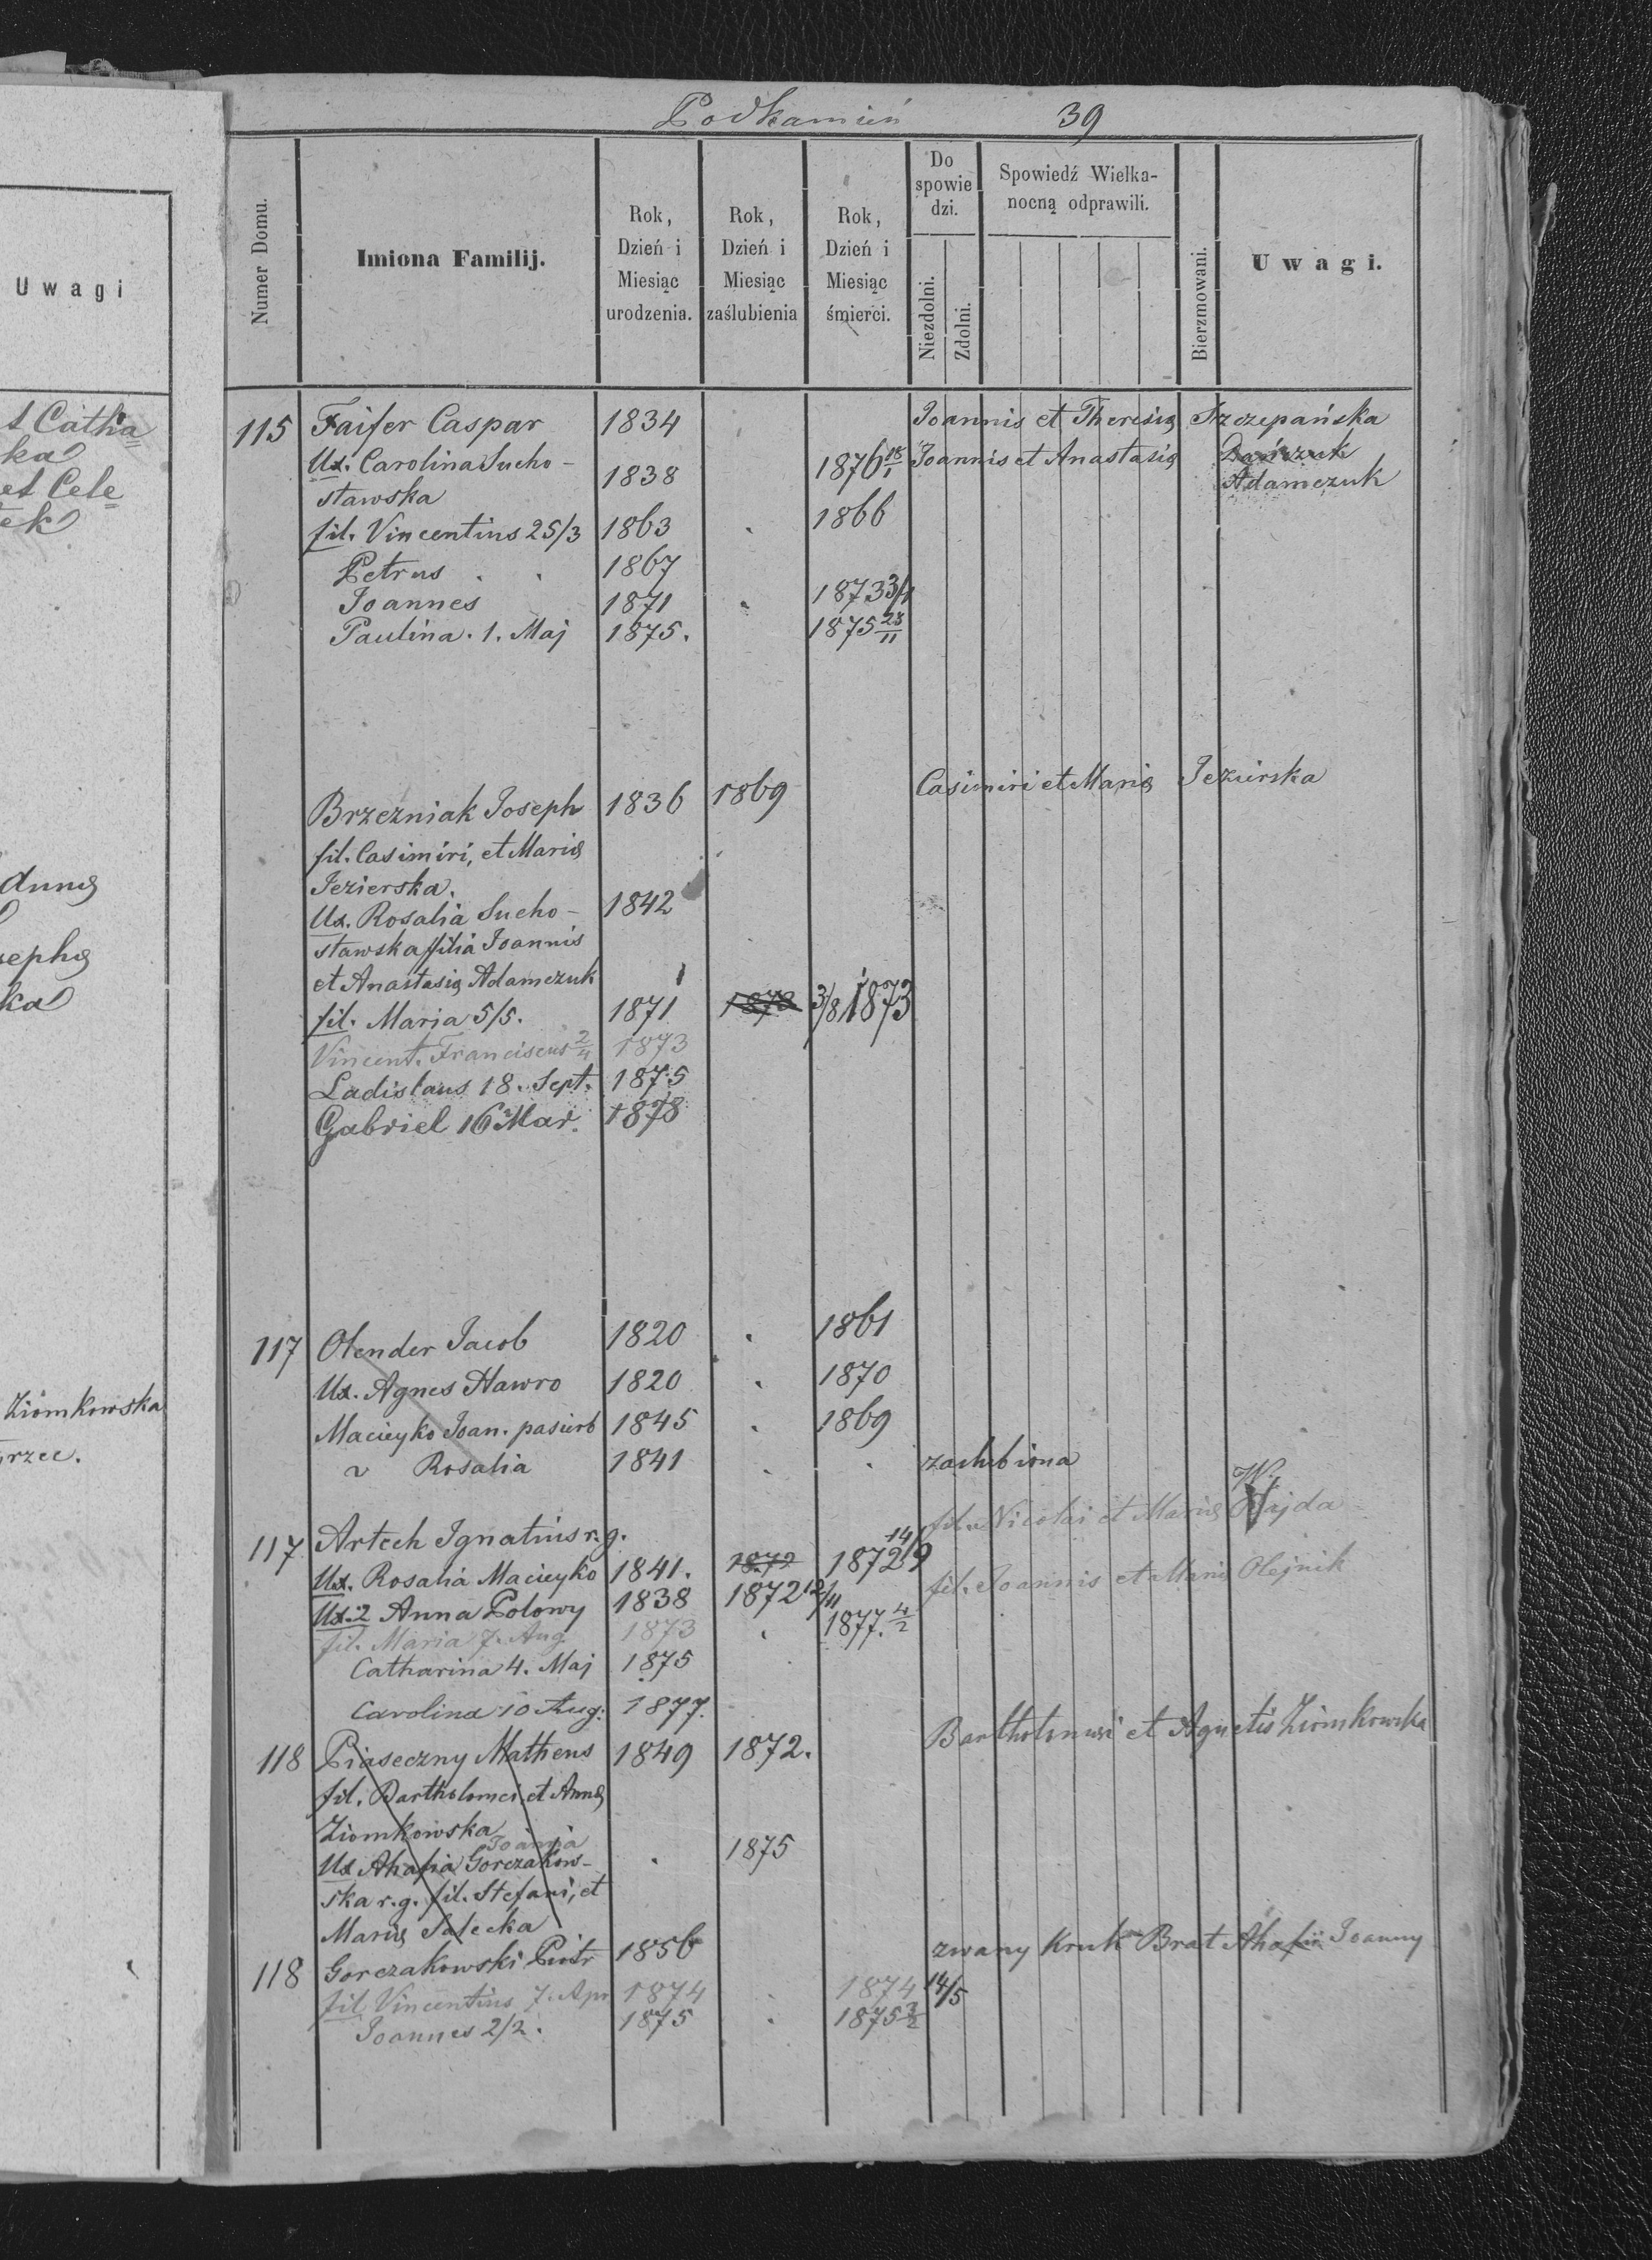 Uwagi
t Catha
ka
et Cele
ek
Annę
sephę
ka
Ziomkowska
rzec.
Podkamień 39
Numer Domu.
Imiona Familij.
Rok, Dzień i Miesiąc urodzenia.
Rok, Dzień i Miesiąc zaślubienia
Rok, Dzień i Miesiąc śmierci.
Do spowie dzi.
Niezdolni.
Zdolni.
Spowiedź Wielka-
nocną odprawili.
Bierzmowani.
Uwagi.
115 Faifer Caspar 1834 Joannis et Theresię Szczepańska
Ux. Carolina Sucho- 1838 1876 18/1 Joannis et Anastasię Dańczuk
stawska Adamczuk
fil. Vincentius 25/3 1863 1866
Petrus 1867
Joannes 1871 1873 3/1
Paulina. 1. Maj 1875. 1875 23/11
Brzezniak Joseph 1836 1869 Casimiri et Marię Jezierska
fil. Casimiri, et Marię
Jezierska.
Ux. Rosalia Sucho- 1842
stawska filia Joannis
et Anastasię Adamczuk
fil. Maria 5/5. 1871 1873 3/8 1873
Vincent. Franciscus 2/4 1873
Ladislaus 18. Sept. 1875
Gabriel 16 Mar. 1878
117 Olender Jacob 1820 1861
Ux. Agnes Hawro 1820 1870
Macieyko Joan. pasierb 1845 1869
v Rosalia 1841 zaślubiona
117 Artech Ignatius r.g. fil. Nicolai et Marię Wajda
Ux. Rosalia Macieyko 1841. 1872 1872 14/9
Ux. 2 Anna Polowy 1838 1872 12/11 fil. Joannis et Marię Olejnik
fil. Maria 7. Aug. 1873 1877. 4/2
Catharina 4. Maj 1875
Carolina 10 Aug: 1877.
118 Piaseczny Matheus 1849 1872. Bartholomei et Agnetis Ziomkowska
fil. Bartholomei et Annę
Ziomkowska
Joanna
Ux Ahafia Gorczakow- 1875
ska r.g. fil. Stefani, et
Marię Salecka
118 Gorczakowski Piotr 1856 zwany Kruk Brat Ahafii Joanny
fil Vincentius 7. Apr 1874 1874 14/5
Joannes 2/2. 1875 1875 3/2